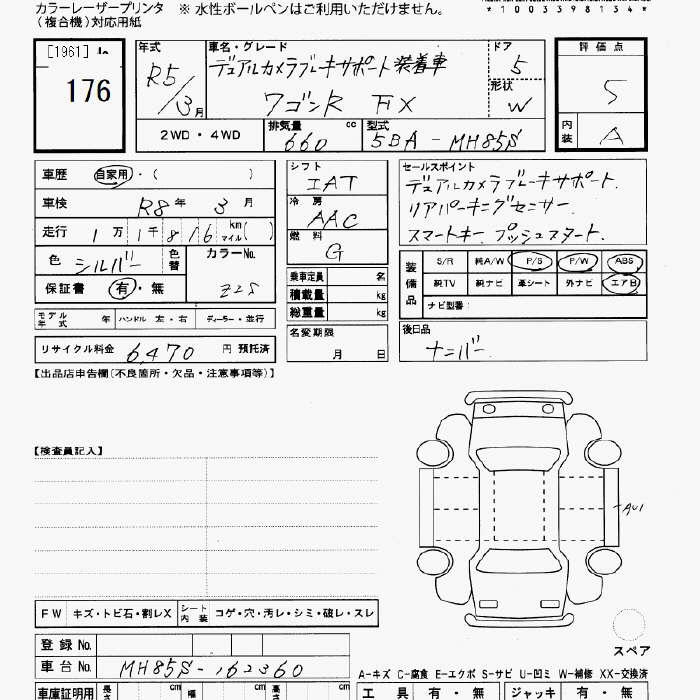 カラーレーザープリンタ ※ 水性ボールペンはご利用いただけません。
(複合機)対応用紙
*1003398134*
[1961]
176
年式 R5/3月
車名・グレード デュアルカメラブレーキサポート装着車
ワゴンR FX
ドア 5
形状 W
評価点 5
内装 A
2WD・4WD 排気量 660 cc 型式 5BA-MH85S
車歴 自家用・( )
車検 R8年 3月
走行 1万1千816 km マイル( )
色 シルバー 色替 カラーNo. Z2S
保証書 有・無
シフト IAT
冷房 AAC
燃料 G
乗車定員 名
積載量 kg
総重量 kg
セールスポイント
デュアルカメラブレーキサポート.
リアパーキングセンサー.
スマートキー. プッシュスタート.
装備品 S/R 純A/W P/S P/W ABS
純TV 純ナビ 革シート 外ナビ エアB
ナビ型番:
モデル年式 年 ハンドル 左・右 ディーラー・並行
名変期限 月 日
後日品 ナンバー.
リサイクル料金 6,470 円 預託済
【出品店申告欄(不良箇所・欠品・注意事項等)】
【検査員記入】
AU1
FW キズ・トビ石・割レX シート内装 コゲ・穴・汚レ・シミ・破レ・スレ
スペア
登録 No.
車台 No. MH85S-162360
A-キズ C-腐食 E-エクボ S-サビ U-凹ミ W-補修 XX-交換済
車庫証明用 長さ cm 幅 cm 高さ cm
工具 有・無 ジャッキ 有・無